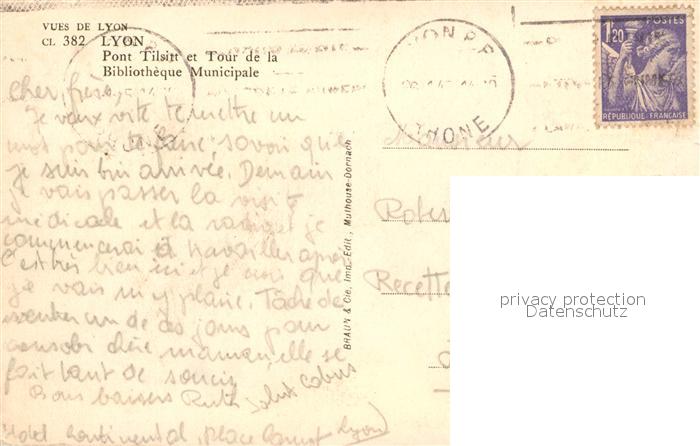 VUES DE LYON
CL 382 LYON
Pont Tilsitt et Tour de la
Bibliothèque Municipale
Cher frère,
Je veux vite te mettre un
mot pour te faire savoir que
je suis bien arrivée. Demain
je vais passer la visite
médicale et la
commencerai à travailler après
C'est très bien ici et je crois que
je vais m'y plaire. Tâche de
un de ces jours pour
chère maman, elle se
fait tant de soucis
Bons baisers Ruth
Hotel Continental, place Carnot Lyon
BRAUN & Cie, Imp.-Edit., Mulhouse-Dornach
RHONE
POSTES
1F20
RÉPUBLIQUE FRANÇAISE
Monsieur
Recette
privacy protection
Datenschutz